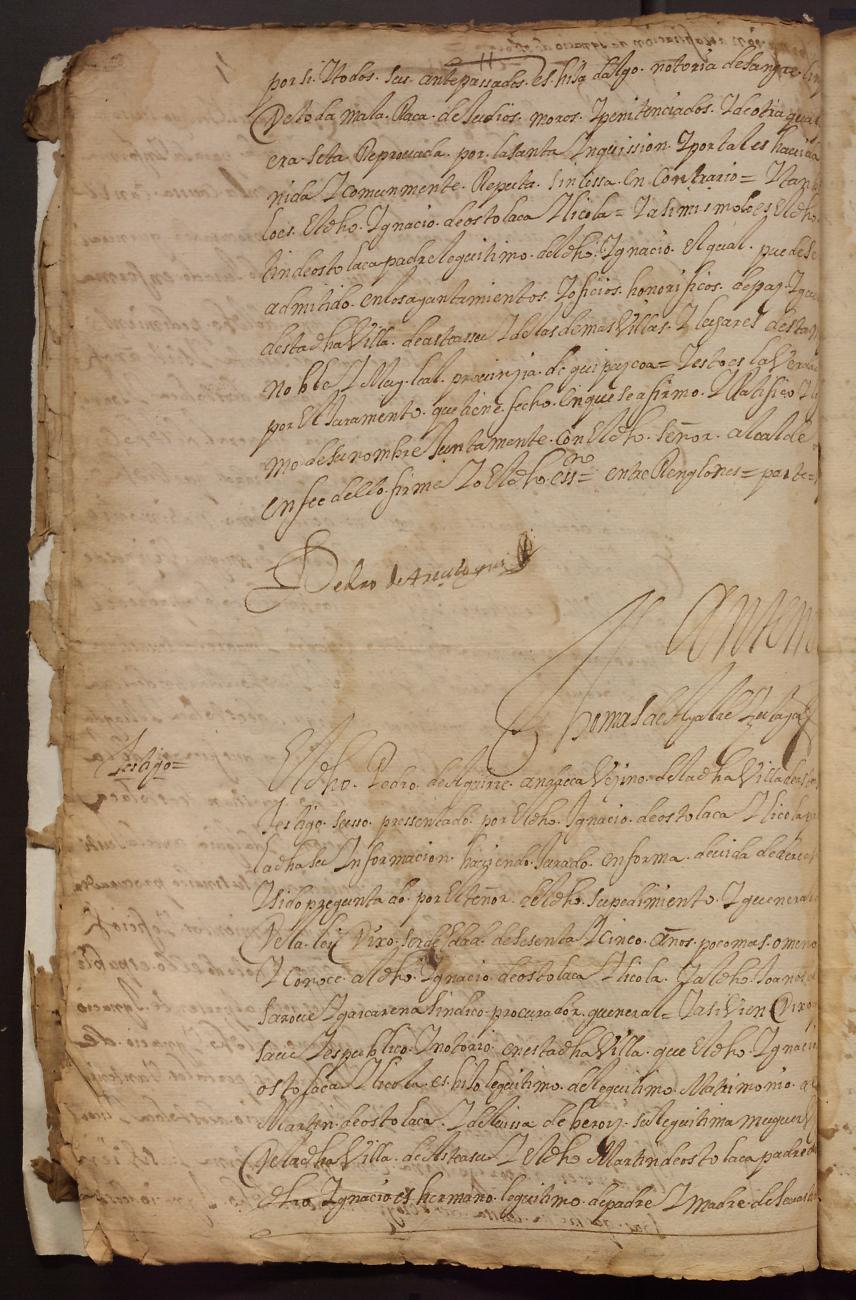 por si. Y todos. sus. antepassados. es. hijo dalgo. notorio. de sangre
De toda mala. Raca. de Judios. moros. Y penitenciados. Y de otra qual
era. seta. Reprouada. por. la santa Ynquission. Y por tal es hauido
nida Y comunmente. Reputa. sin cossa. en contrario =
lo es. El dho. Ygnacio. de ostolaca Ylicola = Y asi mismo lo es. El dho
tin de ostolaca padre leguitimo. del dho. Ygnacio. El qual. puede se
admitido. en los ayuntamientos. Y oficios. honorificos. de paz. Y gue
de sta dha Villa. de asteassu Y de las demas Villas. Y lugares desta
noble Y Muy leal. prouinzia. de guipuzcoa = Y esto es la Verda
por El Juramento. que tiene. fecho. en que se afirmo. Y Ratifico
mo de su nombre Juntamente. con El dho. señor. alcalde
en fee dello. firme Yo El dho. essno = entre Renglones = parte =
Pedro de
Antemi
Thomas de
Testigo =
El dho. Pedro. de Aguirre. andreca Vezino de la dha Villa de
Testigo. susso. pressentado. por El dho. Ygnacio. de ostolaca Ylicola
la dha su Ynformacion. haziendo. Jurado. en forma. deuida. de derec
Y sido pregunta do. por El tenor. del dho. su pedimiento. Y quenerale
De la ley Dixo. ser de Edad. de sesenta Y cinco. años. poco mas. o meno
Y conoce. al dho. Ygnacio. de ostolaca Ylicola. Y al dho. Joanes de
Saroue Ygaicarena Sindico. procurador. gueneral = Y assi Vien Dixo
saue Y es publico. Y notorio. en esta dha Villa. que El dho. Ygnacio
ostolaca Ylicola. es. hijo leguitimo. de leguitimo. Matrimonio.
Martin. de ostolaca. Y de luissa de beroiz. su leguitima muguer
De la dha Villa. de Asteasu Y El dho. Martin de ostolaca padre de
dho. Ygnacio es hermano. leguitimo. de padre Y madre. de